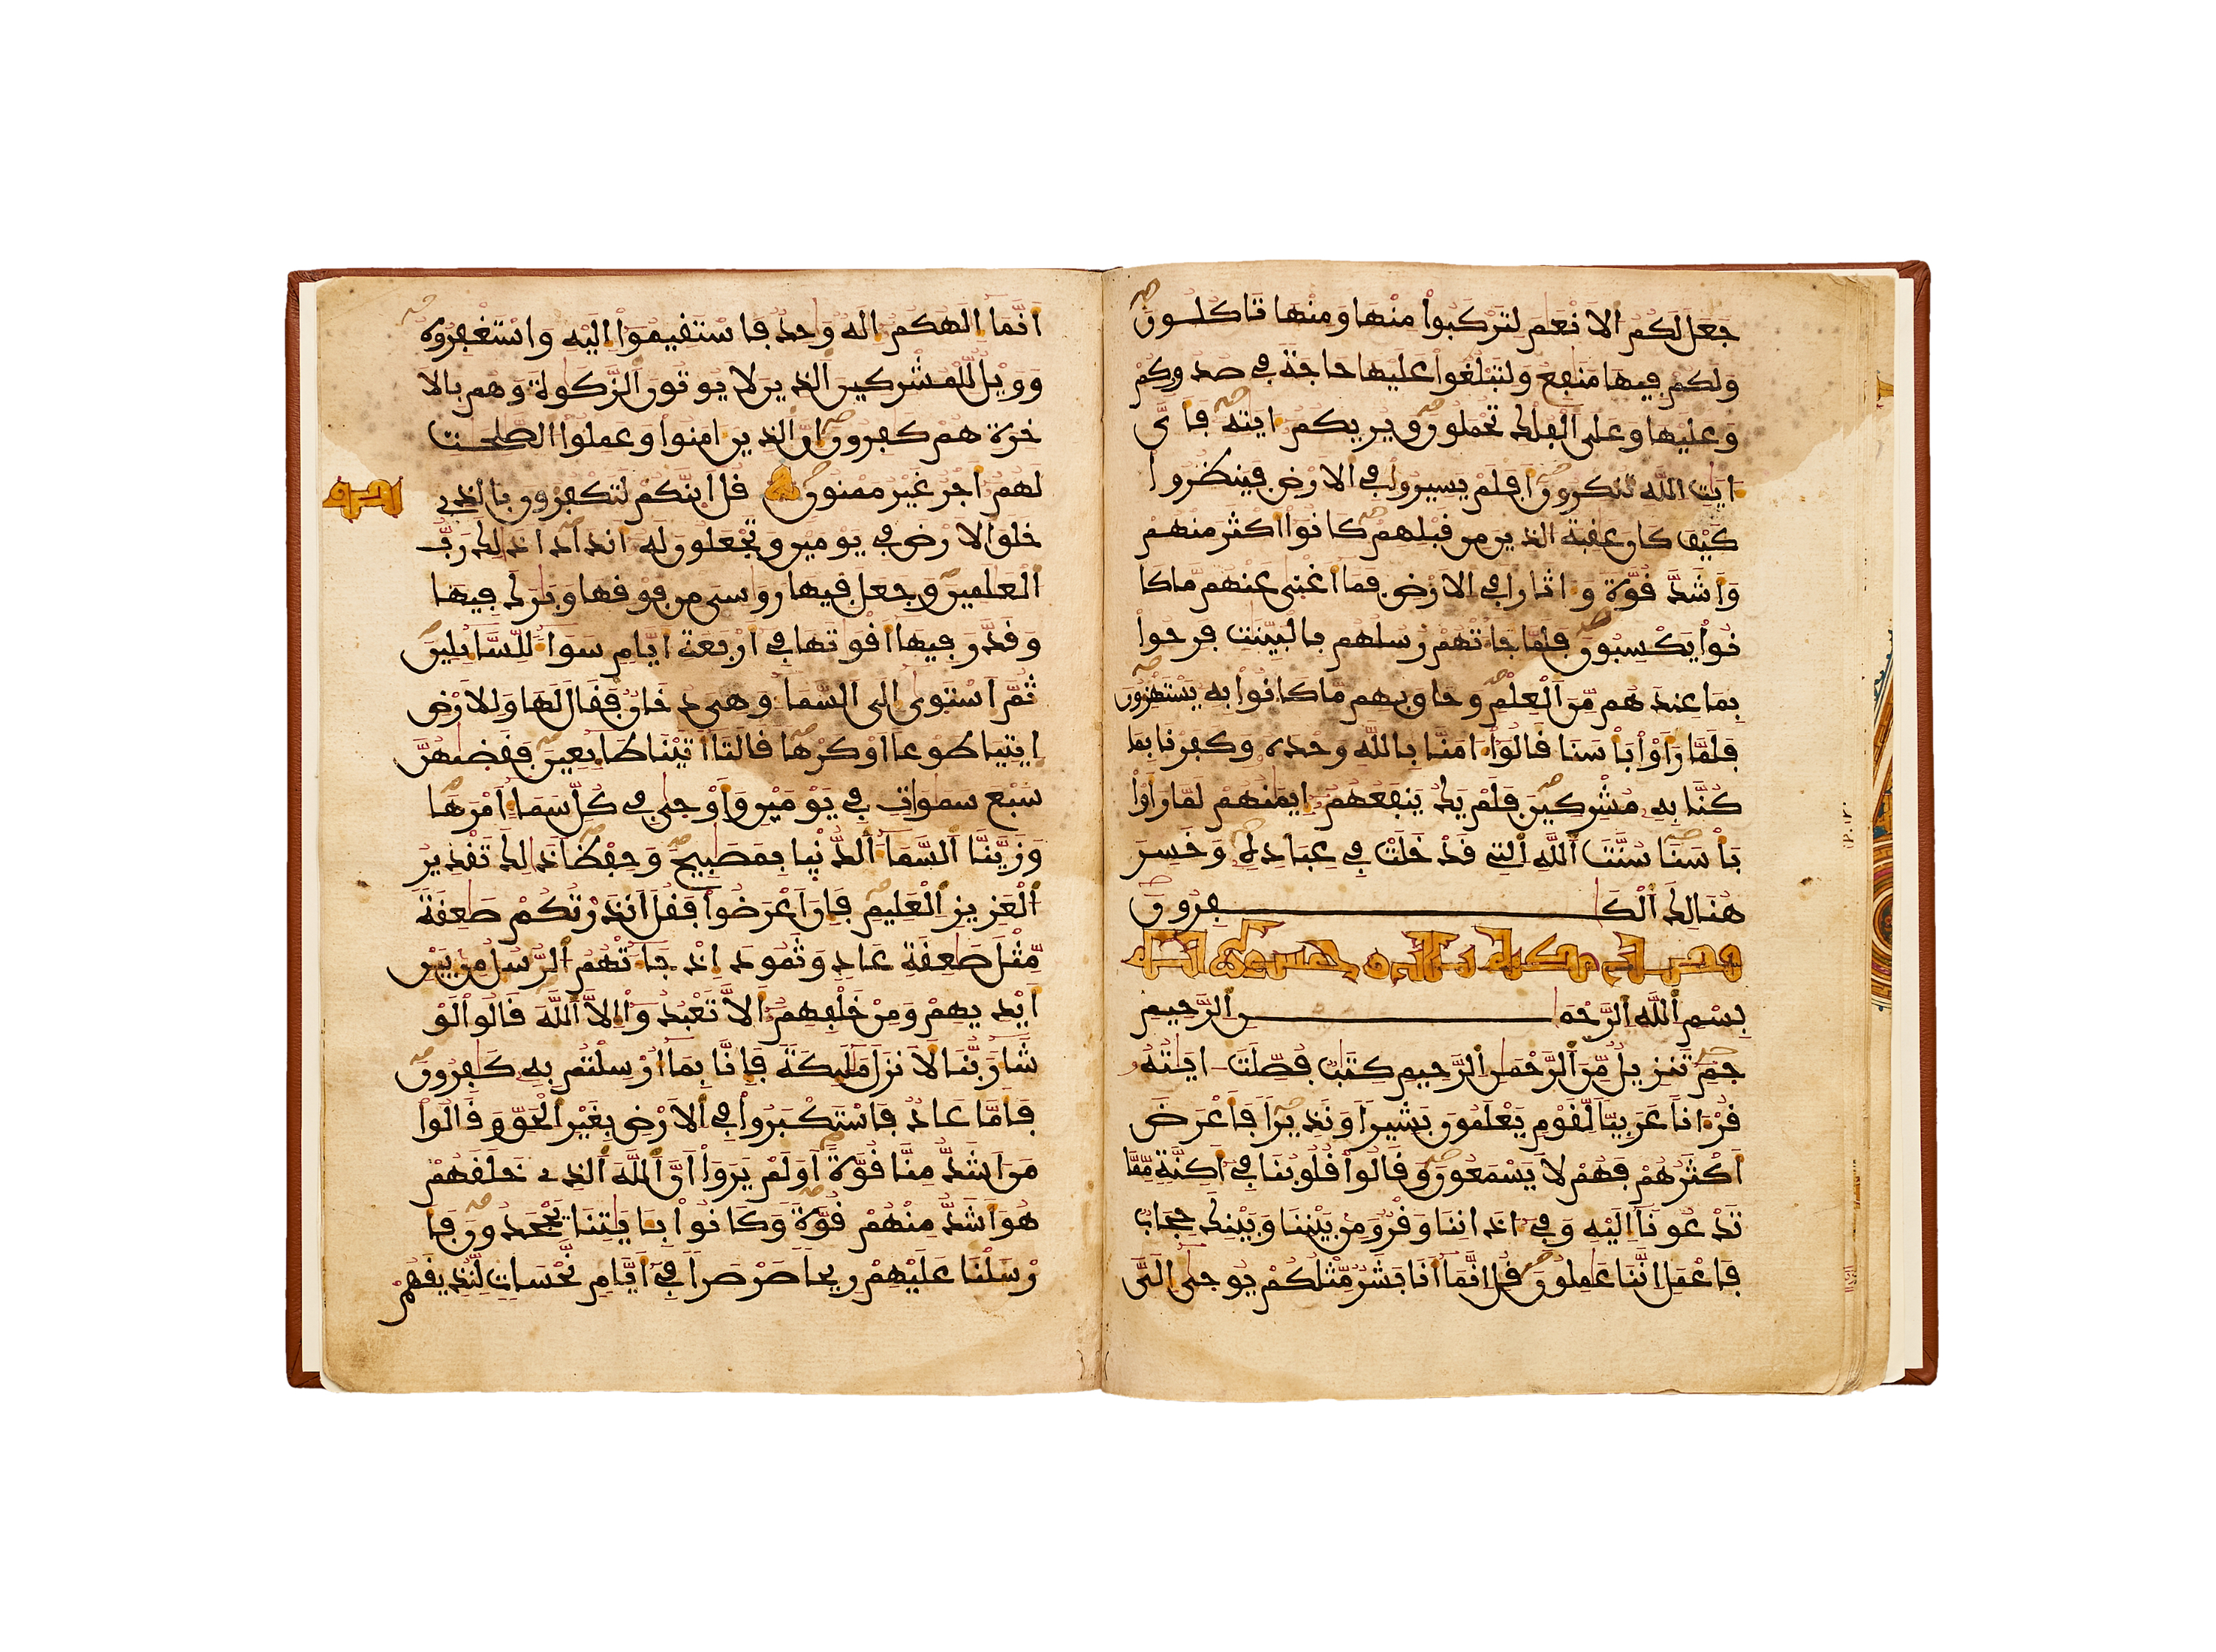 جَعَلَ لَكُمُ ٱلَانْعَٰمَ لِتَرْكَبُوا۟ مِنْهَا وَمِنْهَا تَاكُلُونَ
وَلَكُمْ فِيهَا مَنَٰفِعُ وَلِتَبْلُغُوا۟ عَلَيْهَا حَاجَةً فِي صُدُورِكُمْ
وَعَلَيْهَا وَعَلَى ٱلْفُلْكِ تُحْمَلُونَ وَيُرِيكُمُ ءَايَٰتِهِ فَأَيَّ
ءَايَٰتِ ٱللَّهِ تُنكِرُونَ أَفَلَمْ يَسِيرُوا۟ فِي ٱلَارْضِ فَيَنظُرُوا۟
كَيْفَ كَانَ عَٰقِبَةُ ٱلذِينَ مِن قَبْلِهِمْ كَانُوا۟ أَكْثَرَ مِنْهُمْ
وَأَشَدَّ قُوَّةً وَءَاثَارًا فِي ٱلَارْضِ فَمَا أَغْنَىٰ عَنْهُم مَّا كَا
نُوا۟ يَكْسِبُونَ فَلَمَّا جَآءَتْهُمْ رُسُلُهُم بِالْبَيِّنَٰتِ فَرِحُوا۟
بِمَا عِندَهُم مِّنَ ٱلْعِلْمِ وَحَاقَ بِهِم مَّا كَانُوا۟ بِهِ يَسْتَهْزِءُونَ
فَلَمَّا رَأَوْا۟ بَأْسَنَا قَالُوا۟ ءَامَنَّا بِاللَّهِ وَحْدَهُ وَكَفَرْنَا بِمَا
كُنَّا بِهِ مُشْرِكِينَ فَلَمْ يَكُ يَنفَعُهُمُ إِيمَٰنُهُمْ لَمَّا رَأَوْا۟
بَأْسَنَا سُنَّتَ ٱللَّهِ ٱلتِي قَدْ خَلَتْ فِي عِبَادِهِ وَخَسِرَ
هُنَالِكَ ٱلْكَٰفِرُونَ
وخمسون اية
بِسْمِ ٱللَّهِ ٱلرَّحْمَٰنِ ٱلرَّحِيمِ
حَمِ تَنزِيلٌ مِّنَ ٱلرَّحْمَٰنِ ٱلرَّحِيمِ كِتَٰبٌ فُصِّلَتَ ايَٰتُهُ
قُرْءَانًا عَرَبِيًّا لِّقَوْمٍ يَعْلَمُونَ بَشِيرًا وَنَذِيرًا فَأَعْرَضَ
أَكْثَرُهُمْ فَهُمْ لَا يَسْمَعُونَ وَقَالُوا۟ قُلُوبُنَا فِي أَكِنَّةٍ مِّمَّا
تَدْعُونَا إِلَيْهِ وَفِي ءَاذَانِنَا وَقْرٌ وَمِنۢ بَيْنِنَا وَبَيْنِكَ حِجَابٌ
فَاعْمَلِ انَّنَا عَٰمِلُونَ قُلِ انَّمَا أَنَا بَشَرٌ مِّثْلُكُمْ يُوحَىٰ إِلَيَّ
أَنَّمَا إِلَٰهُكُمُ إِلَٰهٌ وَٰحِدٌ فَاسْتَقِيمُوا۟ إِلَيْهِ وَاسْتَغْفِرُوهُ
وَوَيْلٌ لِّلْمُشْرِكِينَ ٱلذِينَ لَا يُوتُونَ ٱلزَّكَوٰةَ وَهُم بِالَا
خِرَةِ هُمْ كَٰفِرُونَ إِنَّ ٱلذِينَ ءَامَنُوا۟ وَعَمِلُوا۟ ٱلصَّٰلِحَٰتِ
لَهُمُ أَجْرٌ غَيْرُ مَمْنُونٍ قُلَ ٱئِنَّكُمْ لَتَكْفُرُونَ بِالذِي
خَلَقَ ٱلَارْضَ فِي يَوْمَيْنِ وَتَجْعَلُونَ لَهُ أَندَادًا ذَٰلِكَ رَبُّ
ٱلْعَٰلَمِينَ وَجَعَلَ فِيهَا رَوَٰسِيَ مِن فَوْقِهَا وَبَٰرَكَ فِيهَا
وَقَدَّرَ فِيهَا أَقْوَٰتَهَا فِي أَرْبَعَةِ أَيَّامٍ سَوَآءً لِّلسَّآئِلِينَ
ثُمَّ ٱسْتَوَىٰ إِلَى ٱلسَّمَآءِ وَهِيَ دُخَانٌ فَقَالَ لَهَا وَلِلَارْضِ
ٱئتِيَا طَوْعًا أَوْ كَرْهًا قَالَتَا أَتَيْنَا طَآئِعِينَ فَقَضَىٰهُنَّ
سَبْعَ سَمَٰوَاتٍ فِي يَوْمَيْنِ وَأَوْحَىٰ فِي كُلِّ سَمَآءٍ أَمْرَهَا
وَزَيَّنَّا ٱلسَّمَآءَ ٱلدُّنْيَا بِمَصَٰبِيحَ وَحِفْظًا ذَٰلِكَ تَقْدِيرُ
ٱلْعَزِيزِ ٱلْعَلِيمِ فَإِنَ اَعْرَضُوا۟ فَقُلَ اَنذَرْتُكُمْ صَٰعِقَةً
مِّثْلَ صَٰعِقَةِ عَادٍ وَثَمُودَ إِذْ جَآءَتْهُمُ ٱلرُّسُلُ مِنۢ بَيْنِ
أَيْدِيهِمْ وَمِنْ خَلْفِهِمُ أَلَّا تَعْبُدُوا۟ إِلَّا ٱللَّهَ قَالُوا۟ لَوْ
شَآءَ رَبُّنَا لَأَنزَلَ مَلَٰٓئِكَةً فَإِنَّا بِمَا أُرْسِلْتُم بِهِ كَٰفِرُونَ
فَأَمَّا عَادٌ فَاسْتَكْبَرُوا۟ فِي ٱلَارْضِ بِغَيْرِ ٱلْحَقِّ وَقَالُوا۟
مَنَ اَشَدُّ مِنَّا قُوَّةً أَوَلَمْ يَرَوَا۟ اَنَّ ٱللَّهَ ٱلذِي خَلَقَهُمْ
هُوَ أَشَدُّ مِنْهُمْ قُوَّةً وَكَانُوا۟ بِـَٔايَٰتِنَا يَجْحَدُونَ فَأَ
رْسَلْنَا عَلَيْهِمْ رِيحًا صَرْصَرًا فِي أَيَّامٍ نَّحْسَاتٍ لِّنُذِيقَهُمْ